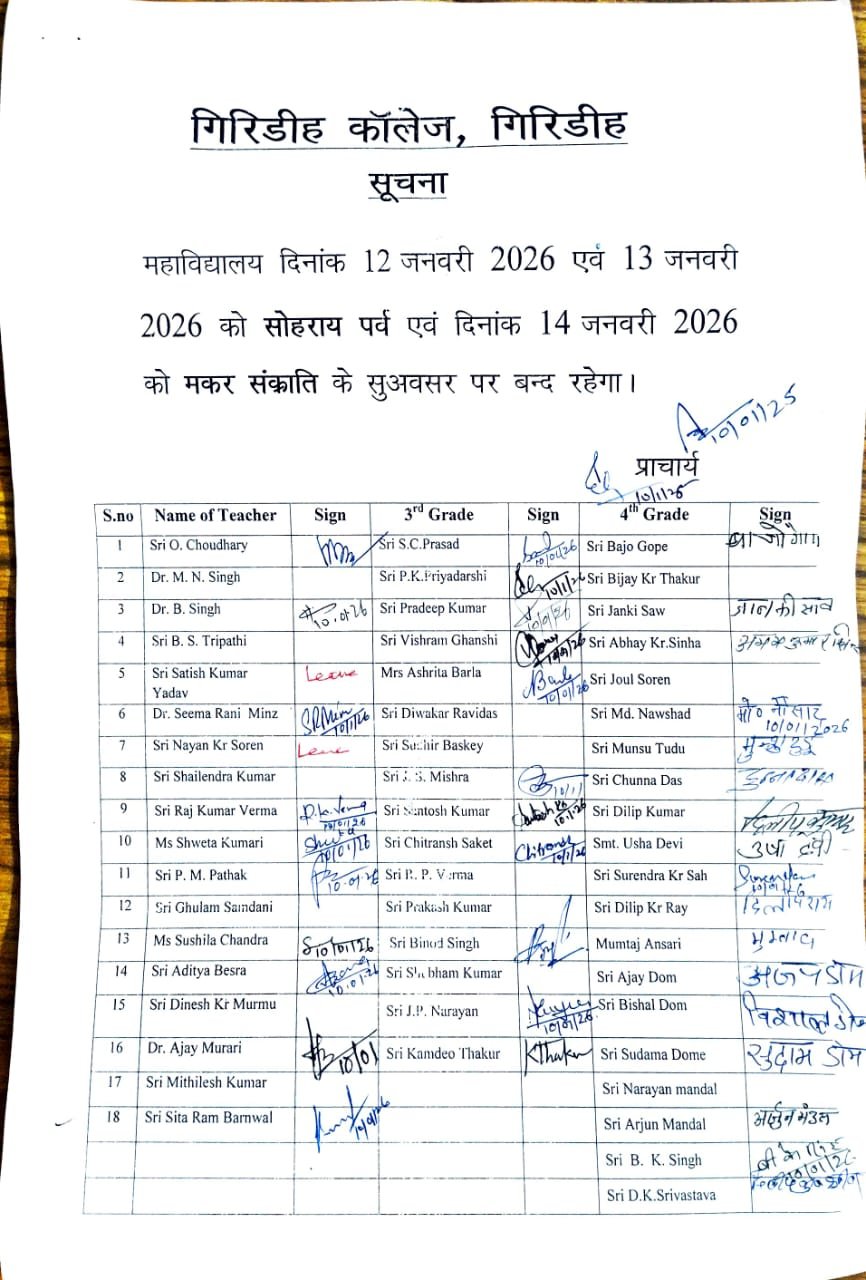 गिरिडीह कॉलेज, गिरिडीह
सूचना
महाविद्यालय दिनांक 12 जनवरी 2026 एवं 13 जनवरी
2026 को सोहराय पर्व एवं दिनांक 14 जनवरी 2026
को मकर संक्राति के सुअवसर पर बन्द रहेगा।
10/01/25
प्राचार्य
10/1/26
S.no Name of Teacher Sign 3rd Grade Sign 4th Grade Sign
1 Sri O. Choudhary Sri S.C.Prasad 10/01/26 Sri Bajo Gope
2 Dr. M. N. Singh Sri P.K.Priyadarshi 10/1/26 Sri Bijay Kr Thakur
3 Dr. B. Singh 10.01.26 Sri Pradeep Kumar 10/01/26 Sri Janki Saw जानकी साव
4 Sri B. S. Tripathi Sri Vishram Ghanshi 10/01/26 Sri Abhay Kr.Sinha
5 Sri Satish Kumar Yadav Leave Mrs Ashrita Barla 10/01/26 Sri Joul Soren
6 Dr. Seema Rani Minz SRMinz 10/1/26 Sri Diwakar Ravidas Sri Md. Nawshad मो० नौसाद 10/01/2026
7 Sri Nayan Kr Soren Leave Sri Sudhir Baskey Sri Munsu Tudu
8 Sri Shailendra Kumar Sri J. S. Mishra 10/1/ Sri Chunna Das
9 Sri Raj Kumar Verma 10/01/26 Sri Santosh Kumar 10.1.26 Sri Dilip Kumar
10 Ms Shweta Kumari 10/01/26 Sri Chitransh Saket 10/1/26 Smt. Usha Devi उषा देवी
11 Sri P. M. Pathak 10.01.26 Sri R. P. Verma Sri Surendra Kr Sah 10/01/26
12 Sri Ghulam Samdani Sri Prakash Kumar Sri Dilip Kr Ray
13 Ms Sushila Chandra 10/01/26 Sri Binod Singh Mumtaj Ansari मुमताज
14 Sri Aditya Besra 10.01.26 Sri Shubham Kumar Sri Ajay Dom अजय डोम
15 Sri Dinesh Kr Murmu Sri J.P. Narayan 10/01/26 Sri Bishal Dom विशाल डोम
16 Dr. Ajay Murari 10/01 Sri Kamdeo Thakur KThakur Sri Sudama Dome सुदाम डोम
17 Sri Mithilesh Kumar Sri Narayan mandal
18 Sri Sita Ram Barnwal 10/01/26 Sri Arjun Mandal अर्जुन मंडल
Sri B. K. Singh 10/01/26
Sri D.K.Srivastava